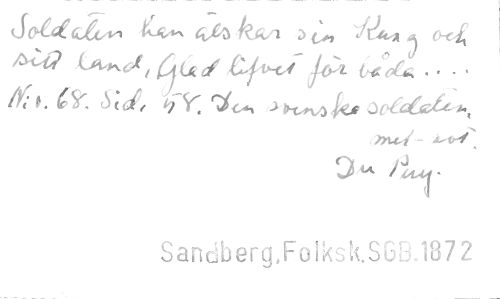 Soldaten han älskar sin Kung och
sitt land, Glad lifvet för båda....
N:o. 68. Sid. 58. Den svenske soldaten.
met-not.
Du Puy.
Sandberg, Folksk. SGB. 1872